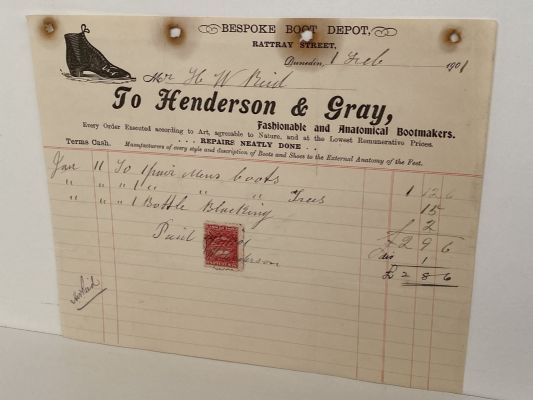 BESPOKE BOOT DEPOT,
RATTRAY STREET,
Dunedin, 1 Feb 1901
Mr H W Reid
To Henderson & Gray,
Fashionable and Anatomical Bootmakers.
Every Order Executed according to Art, agreeable to Nature, and at the Lowest Remunerative Prices.
. . . REPAIRS NEATLY DONE . .
Terms Cash. Manufacturers of every style and description of Boots and Shoes to the External Anatomy of the Feet.
Jan 11 To 1 pair Mens boots 1 12 6
" " " 1 " " " Trees 15
" " " 1 Bottle Blacking 2
Paid £ 2 9 6
Henderson dis 1
£ 2 8 6